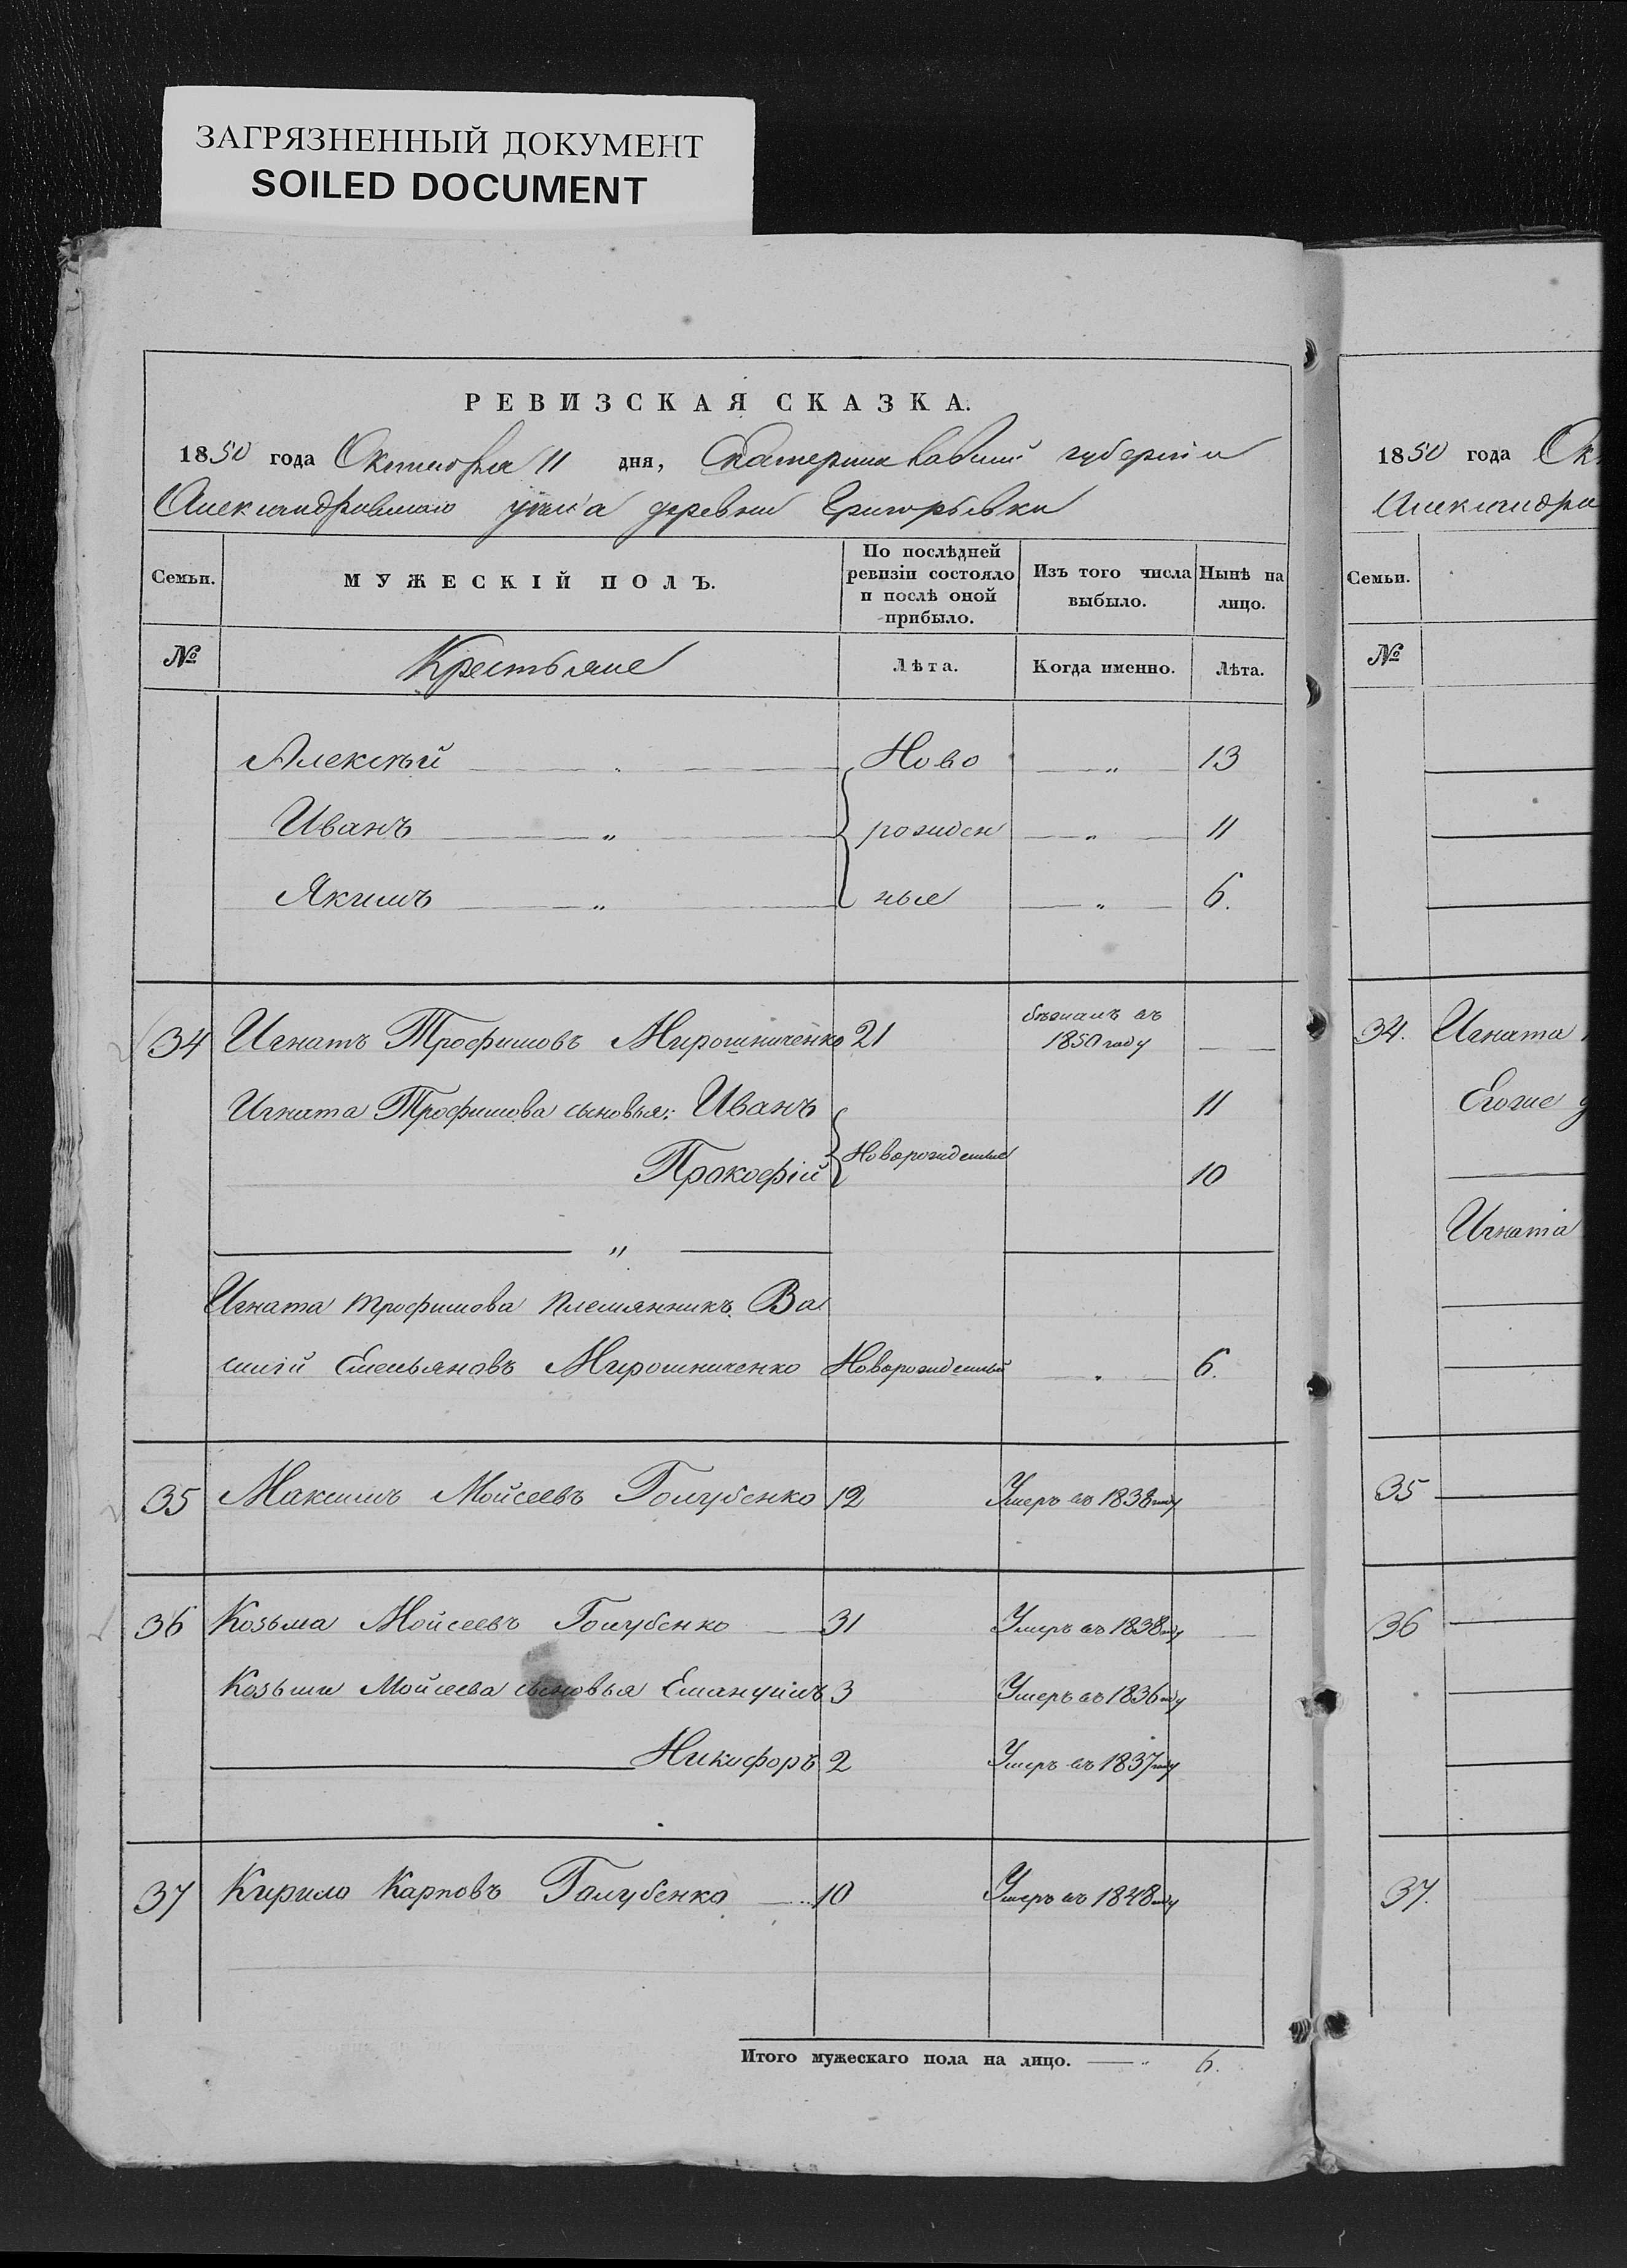 ЗАГРЯЗНЕННЫЙ ДОКУМЕНТ
SOILED DOCUMENT
РЕВИЗСКАЯ СКАЗКА.
1850 года Октября 11 дня, Екатеринославской губернiи
Александровскаго уѣзда деревни Григорьевки
Семьи.
МУЖЕСКIЙ ПОЛЪ.
По послѣдней ревизiи состояло и послѣ оной прибыло.
Изъ того числа выбыло.
Нынѣ на лицо.
№ Крестьяне Лѣта. Когда именно. Лѣта.
Алексѣй Ново " 13
Иванъ " рожден " 11
Якимъ " ные " 6.
34 Игнатъ Трофимовъ Мирошниченко 21 бѣжалъ въ 1850 году
Игната Трофимова сыновья: Иванъ 11
Прокофiй Новорожденные 10
"
Игната Трофимова племянникъ Ва
силiй Емельяновъ Мирошниченко Новорожденный " 6.
35 Максимъ Мойсеевъ Голубенко 12 Умеръ въ 1838 году
36 Козьма Мойсеевъ Голубенко 31 Умеръ въ 1838 году
Козьмы Мойсеева сыновья Емануилъ 3 Умеръ въ 1836 году
Никифоръ 2 Умеръ въ 1837 году
37 Кирило Карповъ Голубенко 10 Умеръ въ 1848 году
Итого мужескаго пола на лицо. " 6.
1850 года Ок
Александро
Семьи.
№
34. Игната
Егоже
Игната
35
36
37.